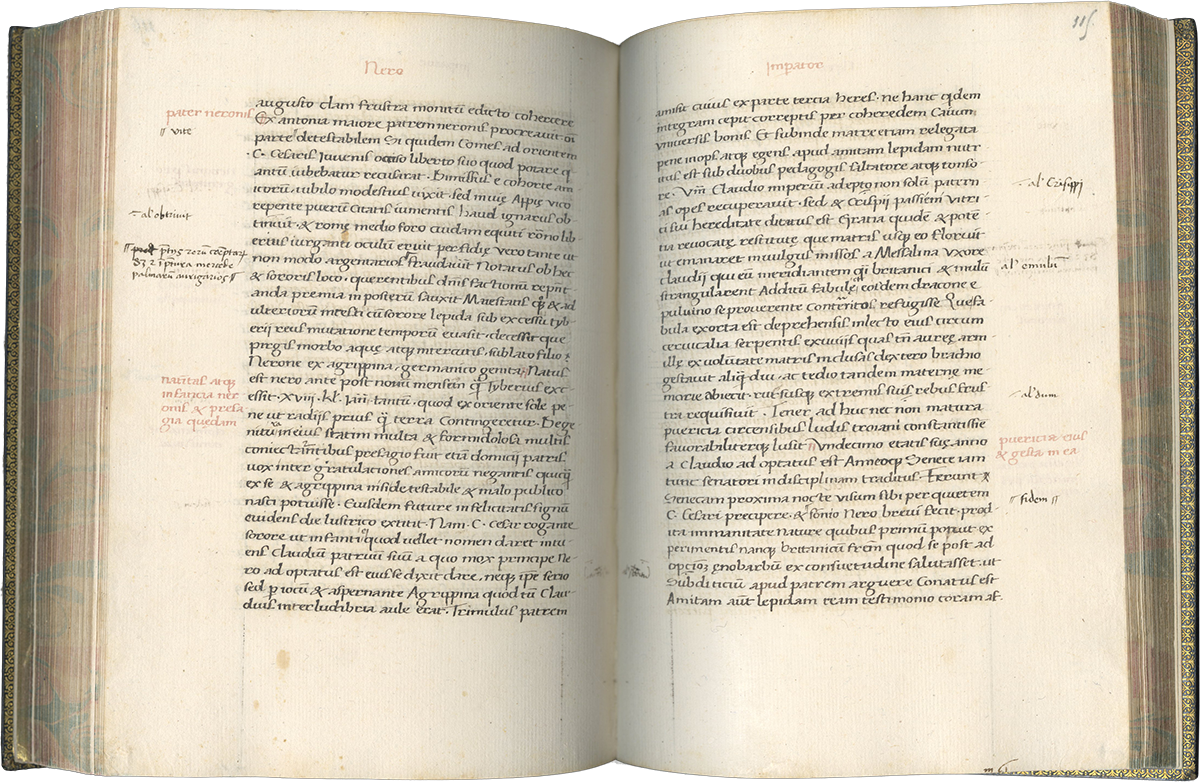 Nero
pater neronis
vite
al' obtriuit
palmarum aurigarios
natiuitas atq;
infancia ner
onis & presa
gia quędam
augusto clam frustra monitū edicto cohercere
Ex antonia maiore patrem neronis procreauit oī
parte detestabilem Si quidem Comes ad orientem
· C · Cesaris Iuuenis occiso liberto suo quod potare q
antū iubebatur recusarat · Dimissus e cohorte am
icorū · nihilo modestius uixit · sed in uię Appię uico
repente puerū citatis iumentis haud ignarus ob
tinuit · & romę medio foro cuidam equiti rōno lib
erius iurganti oculum eruit perfidię uero tante ut
non modo argentarios fraudauit Notatus ob hęc
& sororis loco · querentibus dnis factionū repnt
anda premia in posterū sauxit Maiestatis q; & ad
ulteriorū incesti cū sorore lepida sub excessu tyb
erii reus mutatione temporū euasit · decessit que
pirgis morbo aquę atq; intercutis · sublato filio
Nerone ex agrippina germanico genita Natus
est nero ante post nouū mensem q̄ Tyberius exc
essit · XVIII · kl' iaī · tantū · quod exoriente sole pe
ne ut radijs prius q̄ terra Contingeretur · De ge
nitura eius statim multa & formidolosa multis
coniectantibus presagio fuit etiā domicij patris
uox inter gratulaciones amicorū negantis quicq̄
ex se & agrippina nisi detestabile & malo publico
nasci potuisse · Eiusdem future infelicitatis signū
euidens die lustrico extitit · Nam · C · cesar rogante
sorore ut infanti quod uellet nomen daret intu
ens Claudiū patruū suū a quo mox principe Ne
ro ad optatus est eius se dixit dare, neq; ipe serio
sed p iocū & aspernante Agrippina quod tū Clau
dius inter ludibria aule erat · Trimulus patrem
Imperator
115
amisit cuius ex parte tercia heres · ne hanc qdem
integram cepit correptis per coheredem Caium
uniuersis bonis Et subinde matre etiam relegata
pene inops atq; egens apud amitam lepidam nutr
itus est sub duobus pedagogis saltatore atq; tonso
re · Vm̄ Claudio imperiū adepto non solū patern
as opes recuperauit · sed & crispii passieni uitri
ci sui hereditate ditatus est Gratia quidē & potē
tia reuocatę restitutę que matris usq; eo floruit
ut emanaret in uulgus missos a Messalina uxore
claudij qui eū meridiantem q̄i britanici & mulū
strangularent Additū fabulę eosdem dracone e
puluino se proferente Conterritos refugisse Que fa
bula exorta est deprehensis in lecto eius circum
ceruicalia serpentis exuuijs quas tn̄ aureę arm
illę ex uolūtate matris inclusas dextero brachio
gestauit aliq̄ diu · ac tedio tandem materne me
morie abiecit · rursusq; extremis suis rebus frus
tra requisiuit · Tener ad huc nec non matura
puericia circensibus ludis troiani constantissie
fauorabiliterq; lusit Vndecimo etatis suę anno
a Claudio ad optatus est Anneoq; Senece iam
tunc senatori in disciplinam traditus · Ferunt
Senecam proxima nocte uisum sibi per quietem
C · Cesari precipere · & sōnio Nero breui fecit · prod
ita immanitate nature quibus primū potuit ex
perimentis nanq; britanicū frēm quod se post ad
opcionē ęnobarbū ex consuetudine salutasset · ut
Subditicium apud patrem arguere Conatus est
Amitam aūt lepidam ream testimonio coram af·
al' Crisippi
al' emulū
al' dum
puericia eius
& gesta in ea
fidem